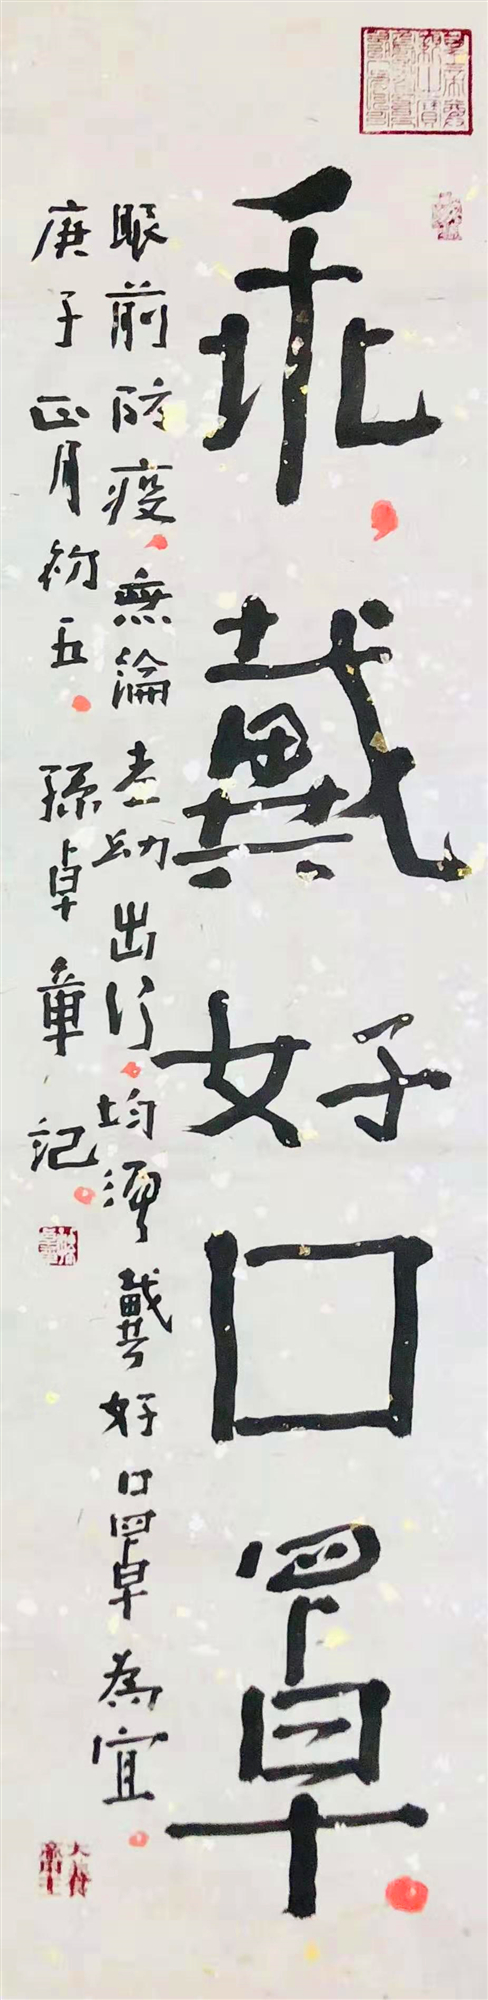 乖，戴好口罩。
眼前防疫，無論老幼出行，均須戴好口罩為宜。
庚子正月初五。孫卓章記。